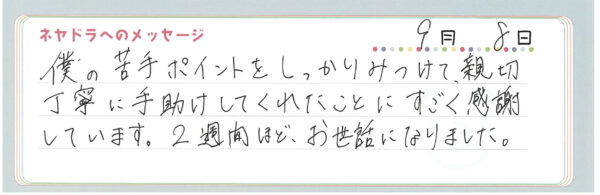 ネヤドラへのメッセージ 9月 8日
僕の苦手ポイントをしっかりみつけて、親切
丁寧に手助けしてくれたことにすごく感謝
しています。2週間ほど、お世話になりました。